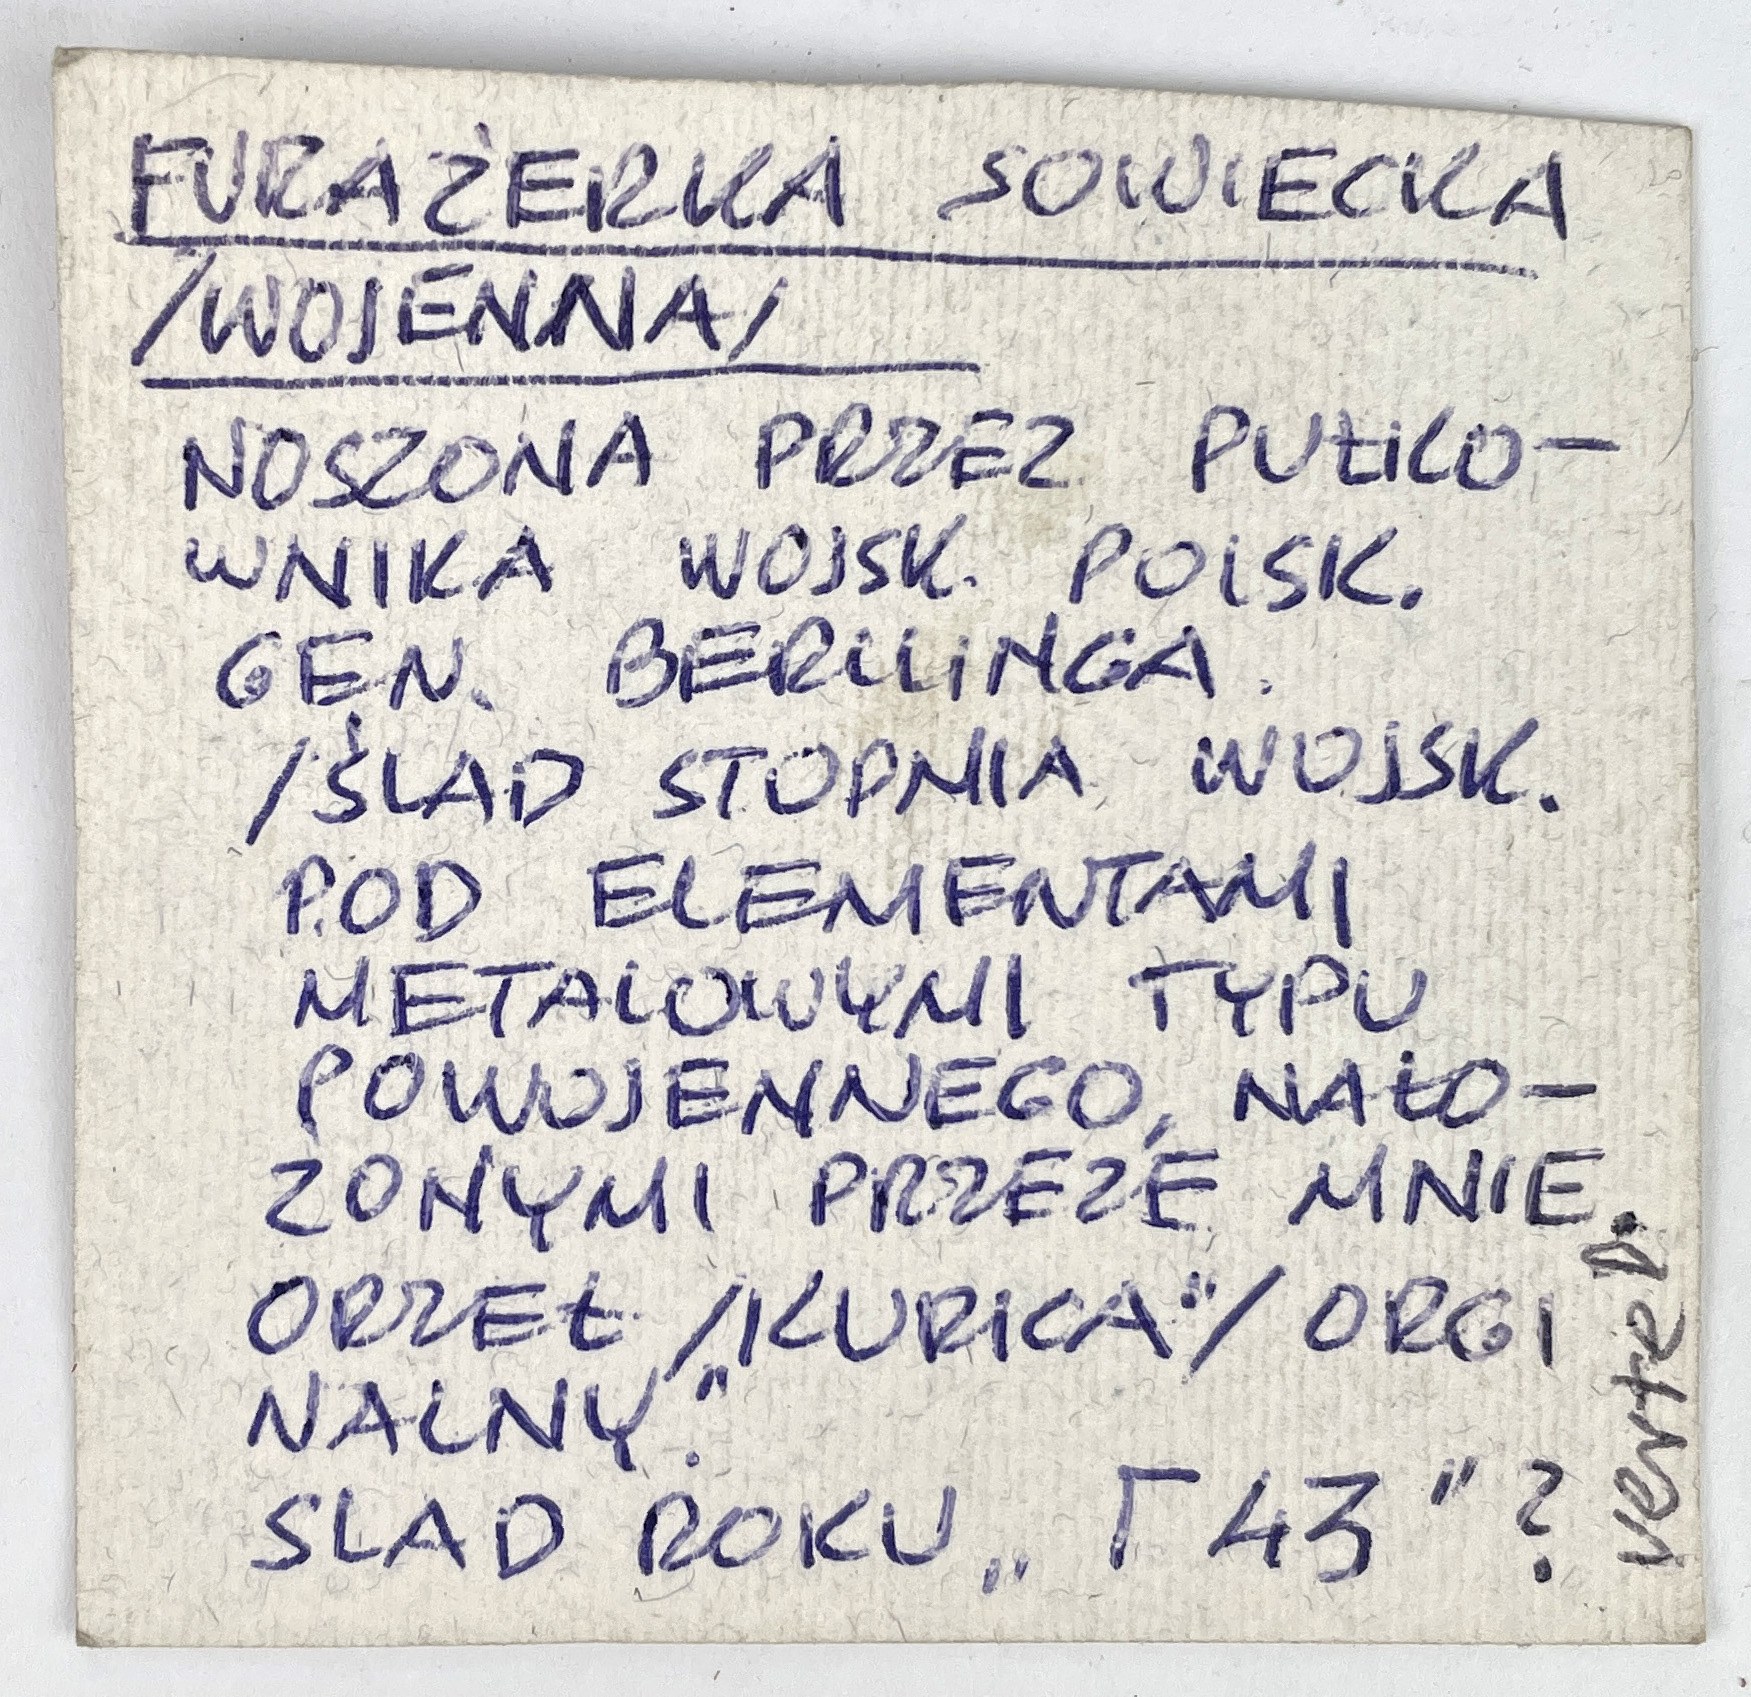 FURAŻERKA SOWIECKA
/WOJENNA/
NOSZONA PRZEZ PUŁKO-
WNIKA WOJSK. POLSK.
GEN. BERLINGA.
/ŚLAD STOPNIA WOJSK.
POD ELEMENTAMI
METALOWYMI TYPU
POWOJENNEGO, NAŁO-
ŻONYMI PRZEZE MNIE.
ORZEŁ /KURICA"/ ORGI
NALNY."
SLAD ROKU „Γ43"?
verte